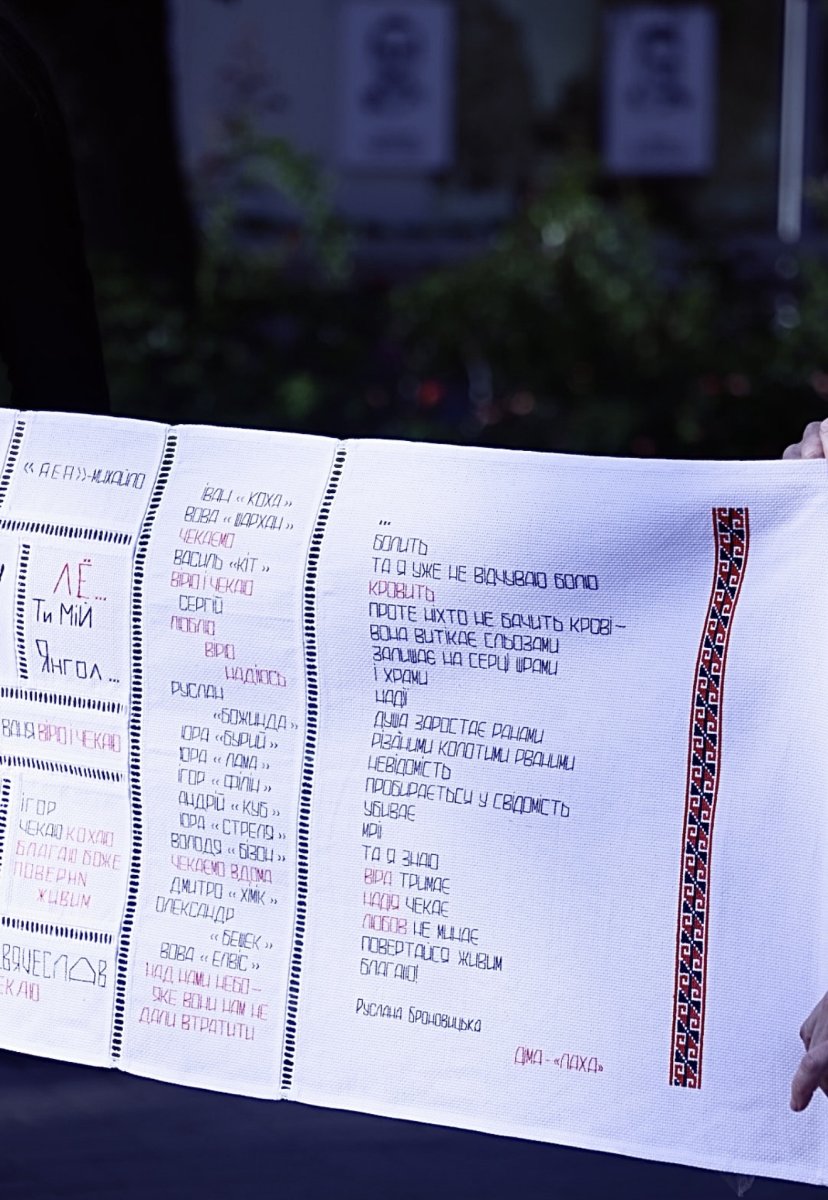 «АЕА»-МИХАЙЛО
ЛЁ...
Ти МІЙ
Янгол...
ВАНЯ ВІРЮ І ЧЕКАЮ
ІГОР
ЧЕКАЮ КОХАЮ
БЛАГАЮ БОЖЕ
ПОВЕРНИ
ЖИВИМ
ВЯЧЕСЛАВ
ЧЕКАЮ
ІВАН «КОХА»
ВОВА «ШАРХАН»
ЧЕКАЄМО
ВАСИЛЬ «КІТ»
ВІРЮ І ЧЕКАЮ
СЕРГІЙ
ЛЮБЛЮ
ВІРЮ
НАДІЮСЬ
РУСЛАН
«БОЖИНДА»
ЮРА «БУРИЙ»
ЮРА «ЛАМА»
ІГОР «ФІЛІН»
АНДРІЙ «КУБ»
ЮРА «СТРЕЛЯ»
ВОЛОДЯ «БІЗОН»
ЧЕКАЄМО ВДОМА
ДМИТРО «ХІМІК»
ОЛЕКСАНДР
«БЕШЕК»
ВОВА «ЕЛВІС»
НАД НАМИ НЕБО –
ЯКЕ ВОНИ НАМ НЕ
ДАЛИ ВТРАТИТИ
...
БОЛИТЬ
ТА Я УЖЕ НЕ ВІДЧУВАЮ БОЛЮ
КРОВИТЬ
ПРОТЕ НІХТО НЕ БАЧИТЬ КРОВІ –
ВОНА ВИТІКАЄ СЛЬОЗАМИ
ЗАЛИШАЄ НА СЕРЦІ ШРАМИ
І ХРАМИ
НАДІЇ
ДУША ЗАРОСТАЄ РАНАМИ
РІЗАНИМИ КОЛОТИМИ РВАНИМИ
НЕВІДОМІСТЬ
ПРОБИРАЄТЬСЯ У СВІДОМІСТЬ
УБИВАЄ
МРІЇ
ТА Я ЗНАЮ
ВІРА ТРИМАЄ
НАДІЯ ЧЕКАЄ
ЛЮБОВ НЕ МИНАЄ
ПОВЕРТАЙСЯ ЖИВИМ
БЛАГАЮ!
Руслана Броновицька
ДІМА - «ЛАХА»